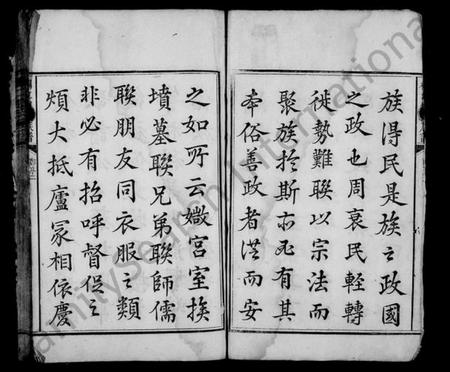 族得民是族之政國
之政也周衰民輕轉
徙勢難聯以宗法而
聚族於斯亦死有其
本俗善政者從而安
之如所云媺宮室族
墳墓聯兄弟聯師儒
聯朋友同衣服之類
非必有招呼督促之
煩大抵廬冢相依慶
FamilySearch International